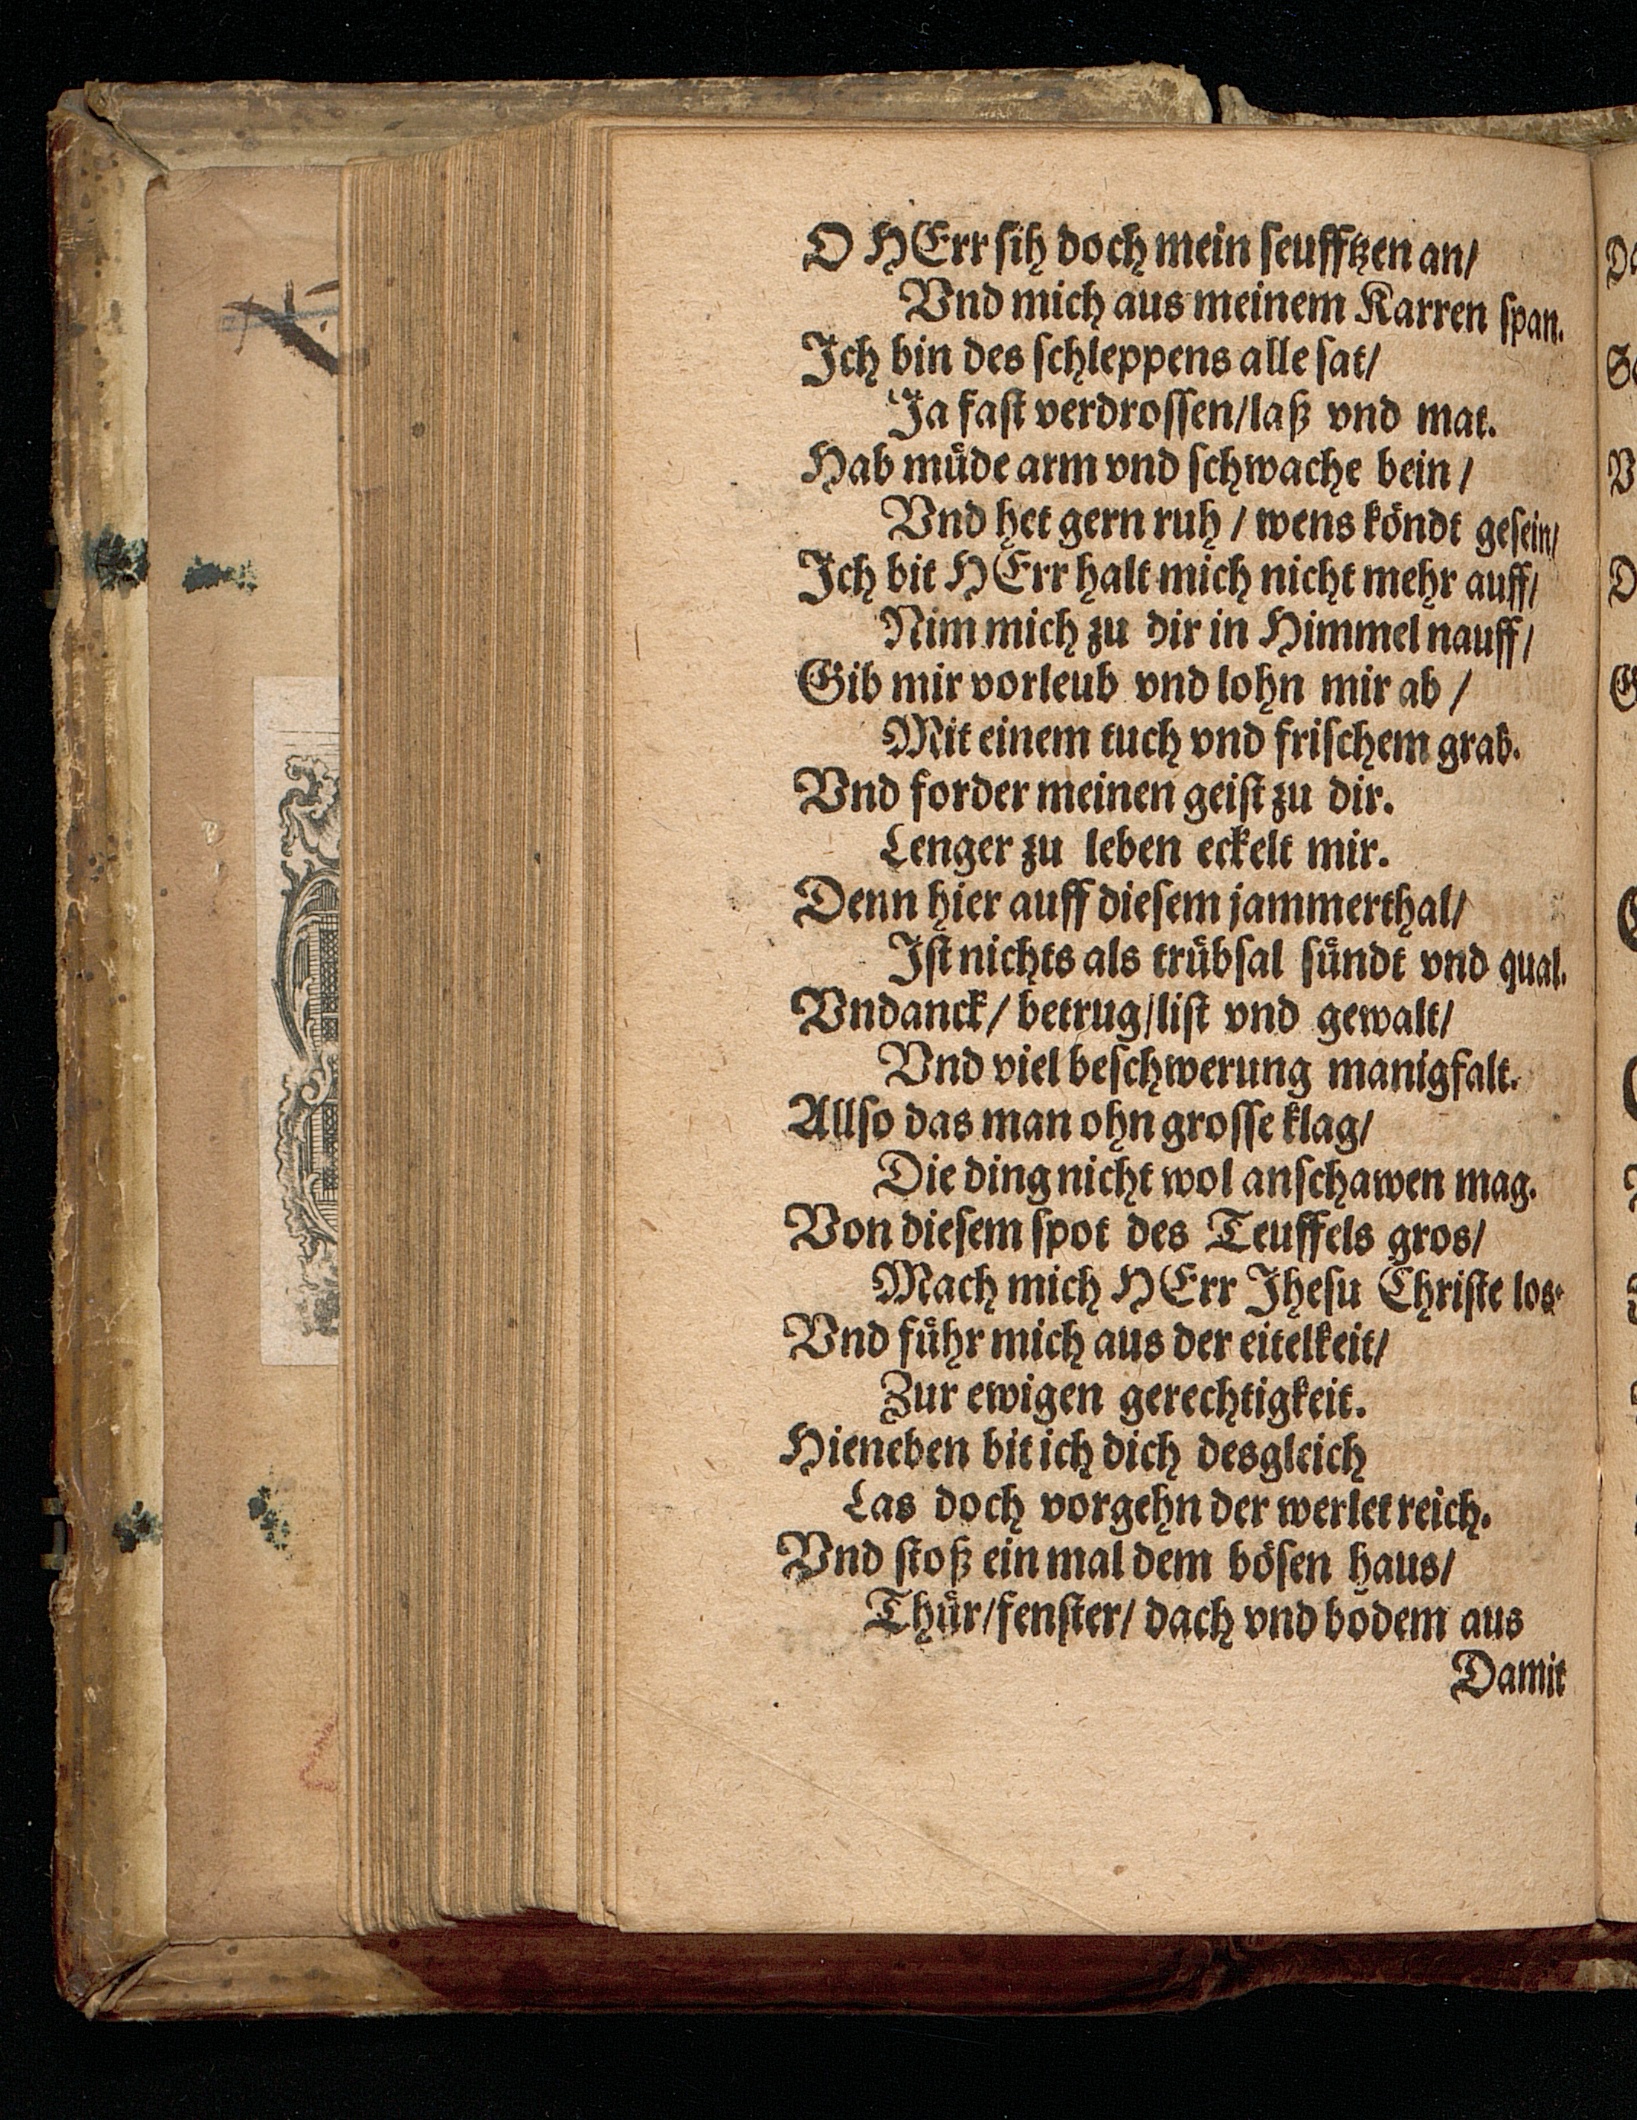 O HErr sih doch mein seufftzen an/
Vnd mich aus meinem Karren span.
Ich bin des schleppens alle sat/
Ja fast verdrossen/laß vnd mat.
Hab müde arm vnd schwache bein /
Vnd het gern ruh / wens köndt gesein/
Ich bit HErr halt mich nicht mehr auff/
Nim mich zu dir in Himmel nauff/
Gib mir vorleub vnd lohn mir ab /
Mit einem tuch vnd frischem grab.
Vnd forder meinen geist zu dir.
Lenger zu leben eckelt mir.
Denn hier auff diesem jammerthal/
Ist nichts als trübsal sündt vnd qual.
Vndanck/ betrug/list vnd gewalt/
Vnd viel beschwerung manigfalt.
Allso das man ohn grosse klag/
Die ding nicht wol anschawen mag.
Von diesem spot des Teuffels gros/
Mach mich HErr Jhesu Christe los.
Vnd führ mich aus der eitelkeit/
Zur ewigen gerechtigkeit.
Hieneben bit ich dich desgleich
Las doch vorgehn der werlet reich.
Vnd stoß ein mal dem bösen haus/
Thür/fenster/ dach vnd bodem aus
Damit